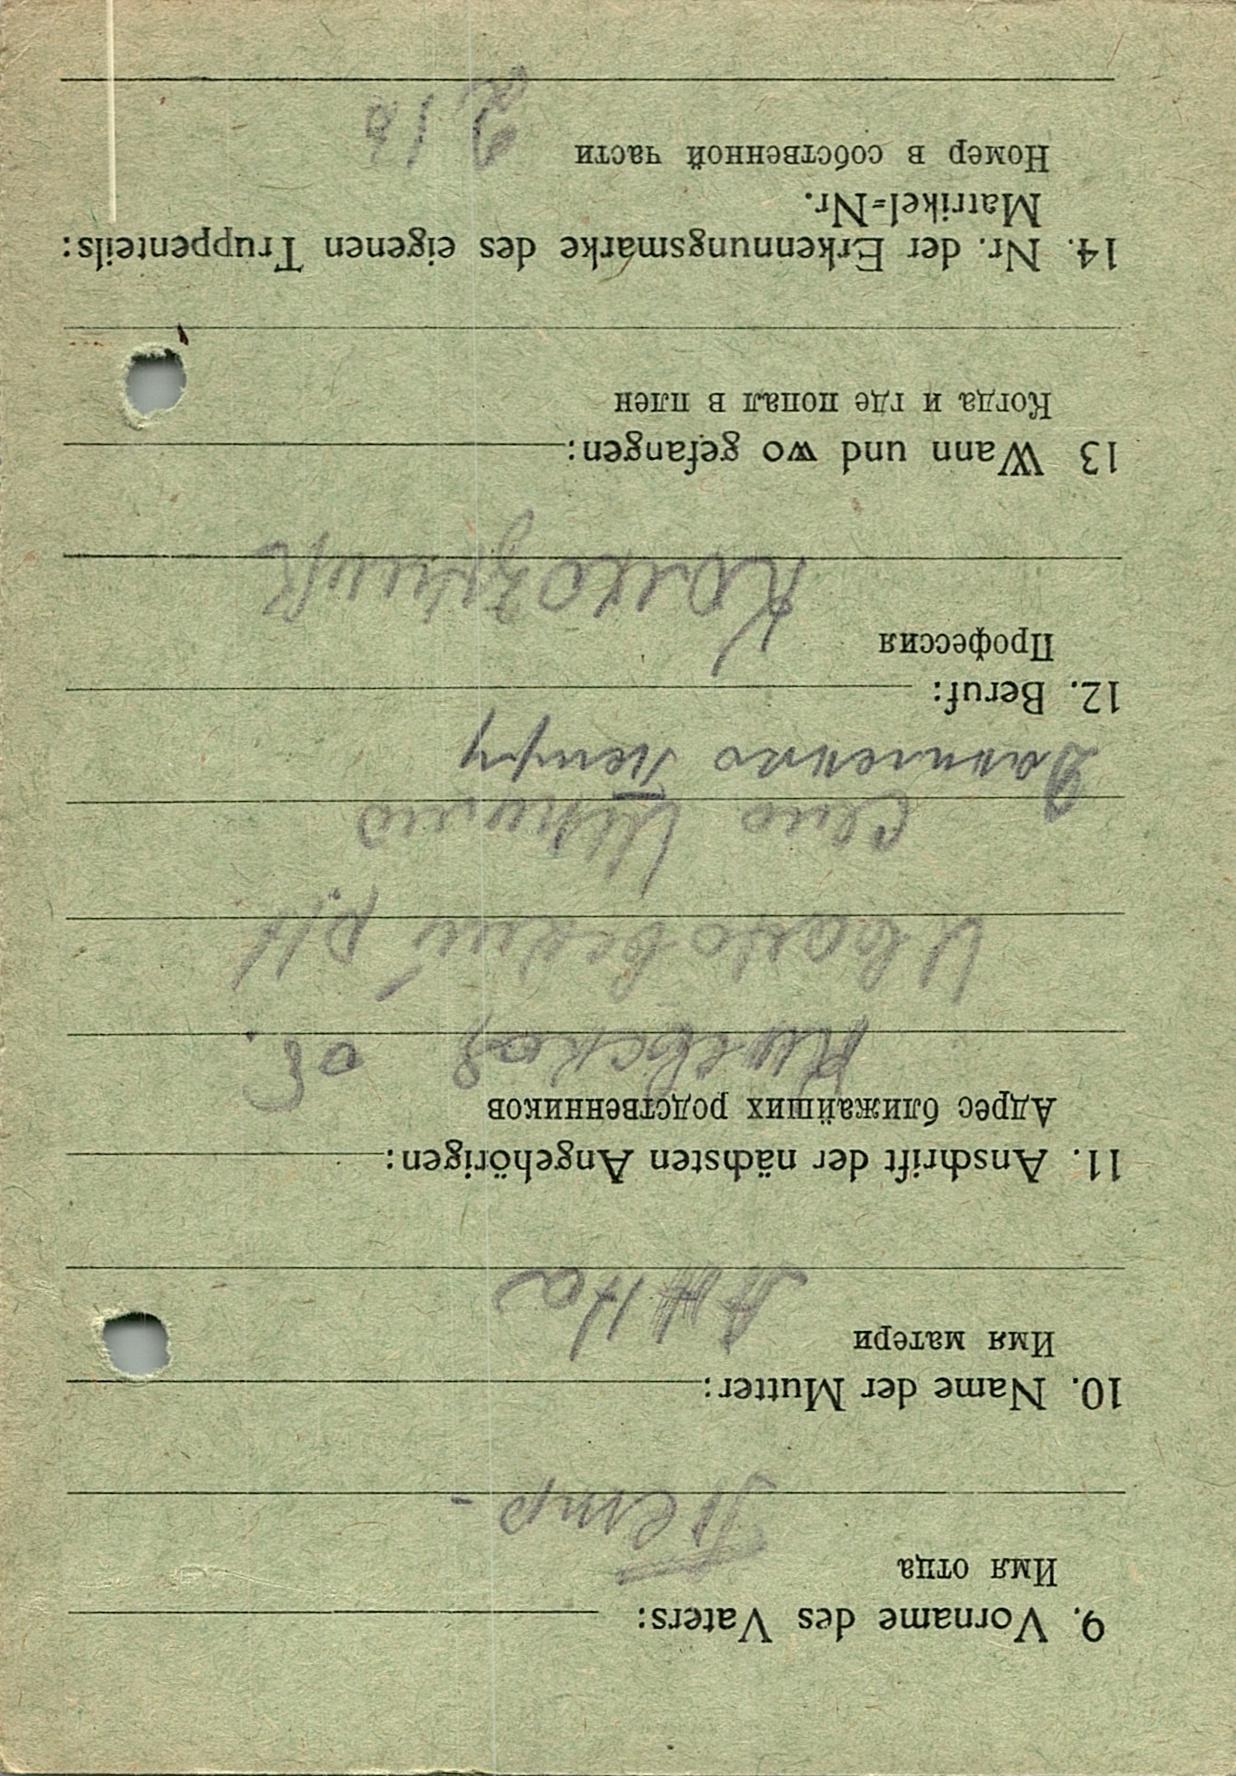 9. Vorname des Vaters:
Имя отца
Петр -
10. Name der Mutter:
Имя матери
Анна
11. Anschrift der nächsten Angehörigen:
Адрес ближайших родственников
Киевская об.
р/н
село
Петру
12. Beruf:
Профессия
Колхозник
13 Wann und wo gefangen:
Когда и где попал в плен
14. Nr. der Erkennungsmarke des eigenen Truppenteils:
Matrikel-Nr.
Номер в собственной части